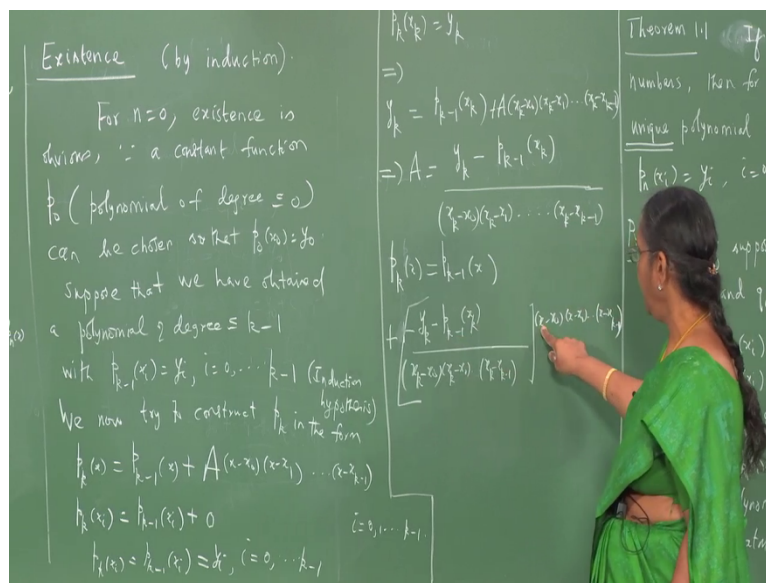 Existence (by induction).
For n=0, existence is
obvious, ∵ a constant function
p₀ (polynomial of degree ≤ 0)
can be chosen so that p₀(x₀)=y₀.
Suppose that we have obtained
a polynomial of degree ≤ k-1
with p_{k-1}(x_i)=y_i, i=0,...k-1 (Induction
hypothesis)
We now try to construct p_k in the form
p_k(x) = p_{k-1}(x) + A(x-x₀)(x-x₁) ...(x-x_{k-1})
p_k(x_i) = p_{k-1}(x_i) + 0
i=0,1,...k-1.
p_k(x_i) = p_{k-1}(x_i) = y_i, i=0, ...k-1
p_k(x_k) = y_k
=>
y_k = p_{k-1}(x_k) + A(x_k-x₀)(x_k-x₁)...(x_k-x_{k-1})
=> A = y_k - p_{k-1}(x_k)
(x_k-x₀)(x_k-x₁).....(x_k-x_{k-1})
p_k(x) = p_{k-1}(x)
+ [y_k - p_{k-1}(x_k)
(x_k-x₀)(x_k-x₁) (x_k-x_{k-1})] (x-x₀)(x-x₁)...(x-x_{k-1})
Theorem 1.1 If
numbers, then for
unique polynomial
p_n(x_i) = y_i, i=0
suppo
and q
(x_i)